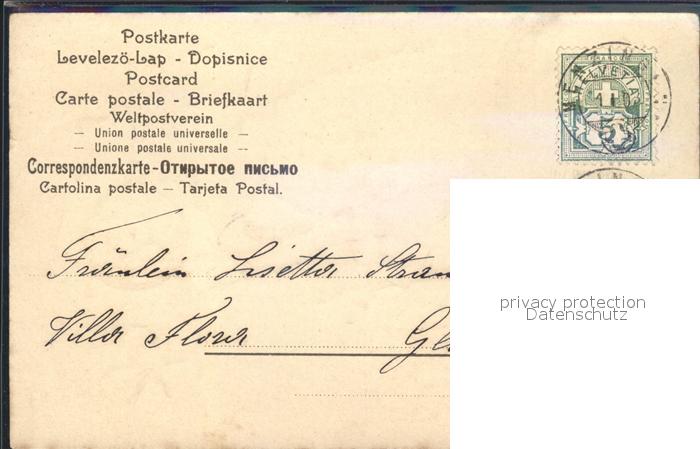 Postkarte
Levelező-Lap - Dopisnice
Postcard
Carte postale - Briefkaart
Weltpostverein
— Union postale universelle —
— Unione postale universale —
Correspondenzkarte-Открытое письмо
Cartolina postale — Tarjeta Postal.
FRANCO
HELVETIA
5
Fräulein Lisetta
Villa Flora
privacy protection
Datenschutz